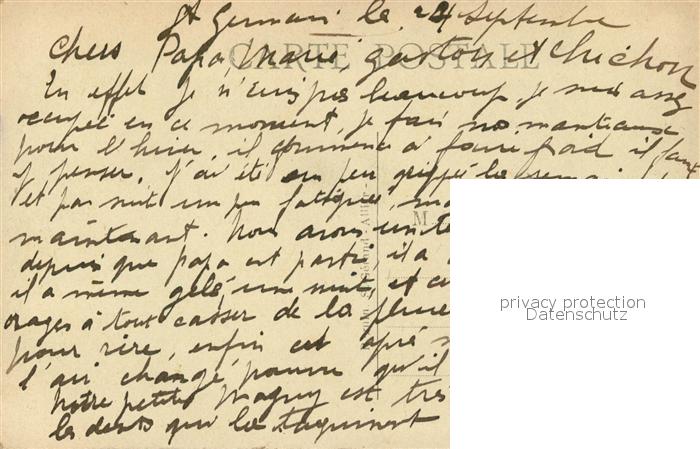 St Germain le 24 Septembre
CARTE POSTALE
Chers Papa, Marie, gaston et Chichon
En effet je n'écris pas beaucoup, je suis assez
occupée en ce moment, je fais nos manteaux
pour l'hiver, il commence à faire froid il faut
y penser, j'ai été un peu grippé la
et par suit un peu fatiguée,
maintenant. Nous avons un
depuis que papa est parti il a
il a même gelé une nuit, et
orages à tout casser de la
pour rire, enfin est après
l'air changé, pourvu qu'il
Notre petite Maguy est très
les dents qui la taquinent
M.
privacy protection
Datenschutz